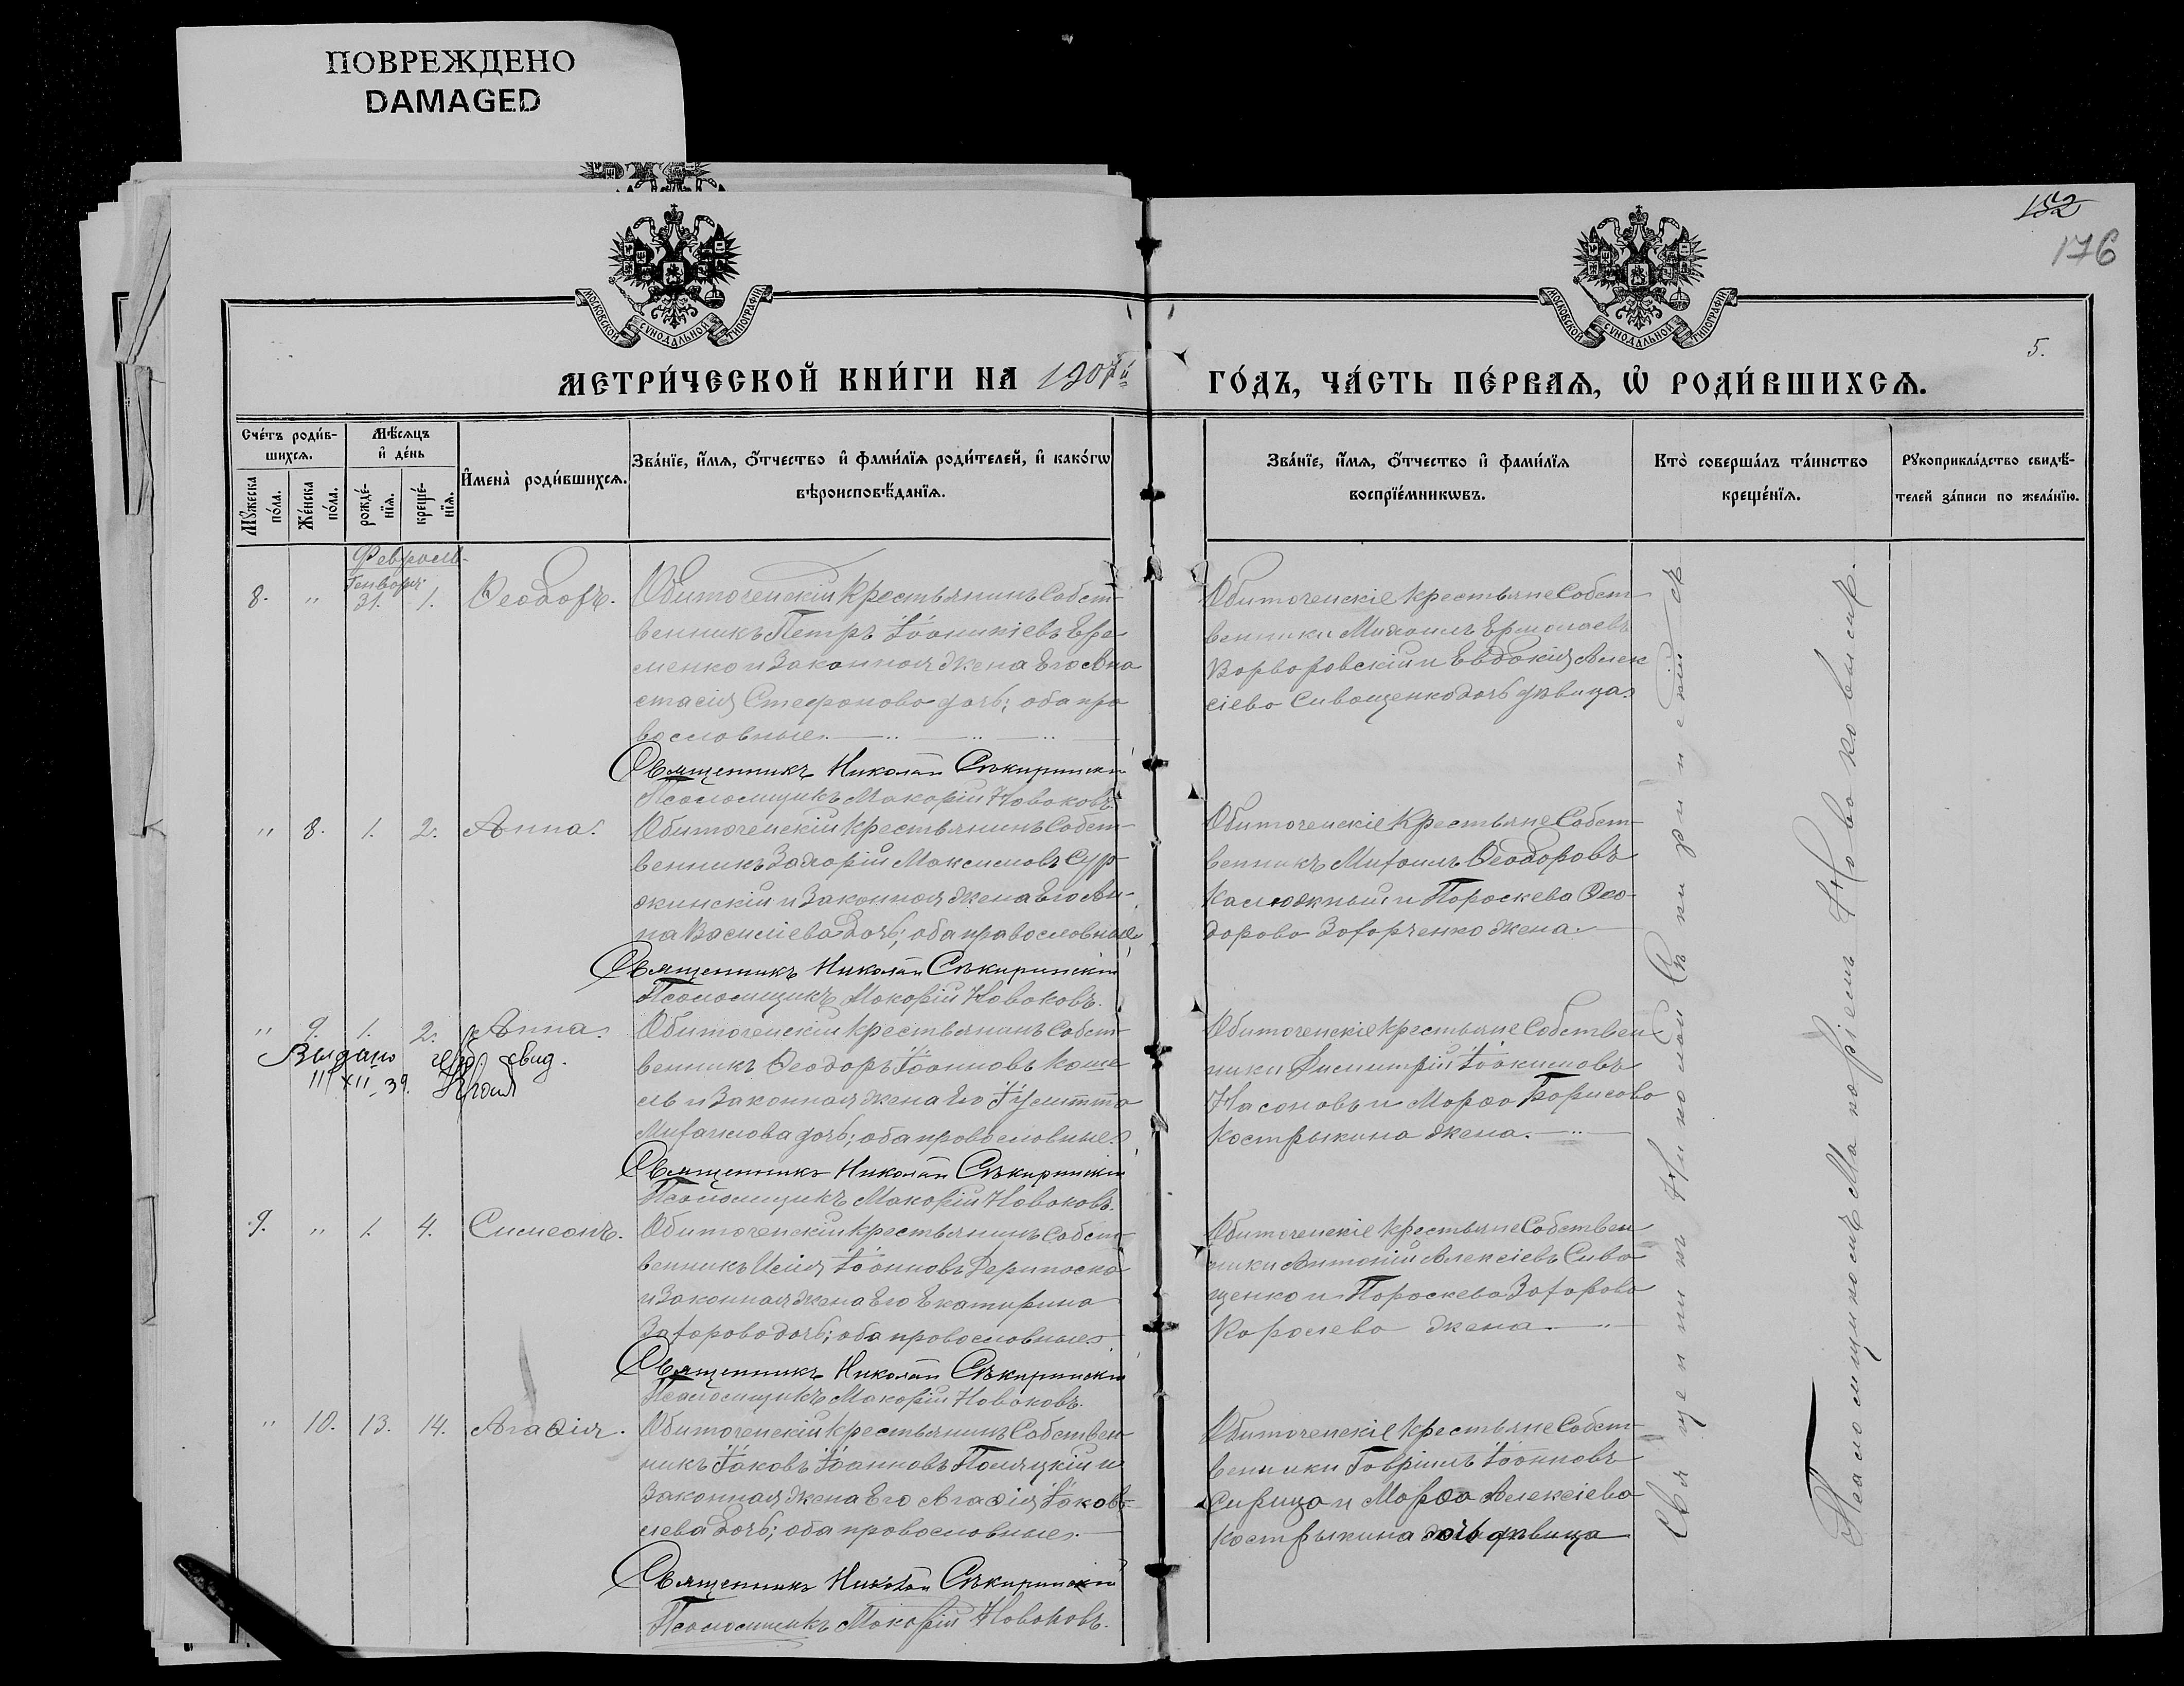 ПОВРЕЖДЕНО
DAMAGED
152
176
5.
МОСКОВСКОЙ СѴНОДАЛЬНОЙ ТИПОГРАФІИ
МОСКОВСКОЙ СѴНОДАЛЬНОЙ ТИПОГРАФІИ
МЕТРИ́ЧЕСКОЙ КНИ́ГИ НА 1907й
ГО́ДЪ, ЧА́СТЬ ПЕ́РВАѦ, Ѽ РОДИ́ВШИХСѦ.
Сче́тъ роди́в-
шихсѧ.
Мѣ́сѧцъ
и҆ де́нь
Мꙋ́жеска по́ла.
Же́нска по́ла.
рожде́-нїѧ.
креще́-нїѧ.
И҆мена̀ роди́вшихсѧ.
Зва́нїе, и҆́мѧ, ѻ҆́тчество и҆ фами́лїѧ роди́телей, и҆ како́гѡ
вѣроисповѣ́данїѧ.
Зва́нїе, и҆́мѧ, ѻ҆́тчество и҆ фами́лїѧ
воспрїе́мникѡвъ.
Кто̀ соверша́лъ та́инство
креще́нїѧ.
Рꙋкоприкла́дство свидѣ́-
телей за́писи по жела́нїю.
Февраль
Генваря
8. " 31. 1. Ѳеодоръ.
Обиточенскій крестьянинъ Собст-
венникъ Петръ Іоанникіевъ Ере
менко и Законная жена Его Ана
стасія Стефанова дочь; оба пра
вославные.
Священникъ Николай Сѣкиринскій
Псаломщикъ Макарій Новаковъ.
Обиточенскіе крестьяне Собст-
венники Михаилъ Ермолаевъ
Варваровскій и Евдокія Алек
сіева Сиващенко дочь дѣвица.
" 8. 1. 2. Анна.
Обиточенскій крестьянинъ Собст-
венникъ Захарій Максимовъ Сур
жинскій и Законная жена Его Ан-
на Василіева Дочь; оба православные
Священникъ Николай Сѣкиринскій
Псаломщикъ Макарій Новаковъ.
Обиточенскіе Крестьяне Собст-
венникъ Михаилъ Ѳеодоровъ
Калюжный и Параскева Ѳео-
дорова Захарченко жена.
" 9. 1. 2. Анна.
Выдано свид.
III XII 39.
Обиточенскій крестьянинъ Собст-
венникъ Ѳеодоръ Іоанновъ Коше
ль и Законная жена Его Іулитта
Михаилова дочь; оба православные.
Священникъ Николай Сѣкиринскій
Псаломщикъ Макарій Новаковъ.
Обиточенскіе крестьяне Собствен
ники Димитрій Іоакимовъ
Насоновъ и Марѳа Борисова
Кострыкина жена.
9. " 1. 4. Симеонъ.
Обиточенскій крестьянинъ Собст-
венникъ Илія Іоанновъ Дерипаска
и Законная жена Его Екатирина
Захарова дочь; оба православные.
Священникъ Николай Сѣкиринскій
Псаломщикъ Макарій Новаковъ.
Обиточенскіе крестьяне Собствен
ники Антоній Алексіевъ Сива
щенко и Параскева Захарова
Королева жена.
" 10. 13. 14. Агаѳія.
Обиточенскій крестьянинъ Собствен
никъ Іаковъ Іоанновъ Поляцкій и
Законная жена Его Агаѳія Іаков-
лева Дочь; оба православные.
Священникъ Николай Сѣкиринскій
Псаломщикъ Макарій Новаковъ.
Обиточенскіе крестьяне Собст-
венники Гавріилъ Іоанновъ
Сирица и Марѳа Алексіева
Кострыкина дочь дѣвица
Священникъ Николай Сѣкиринскій съ
Псаломщикомъ Макаріемъ Новаковымъ.